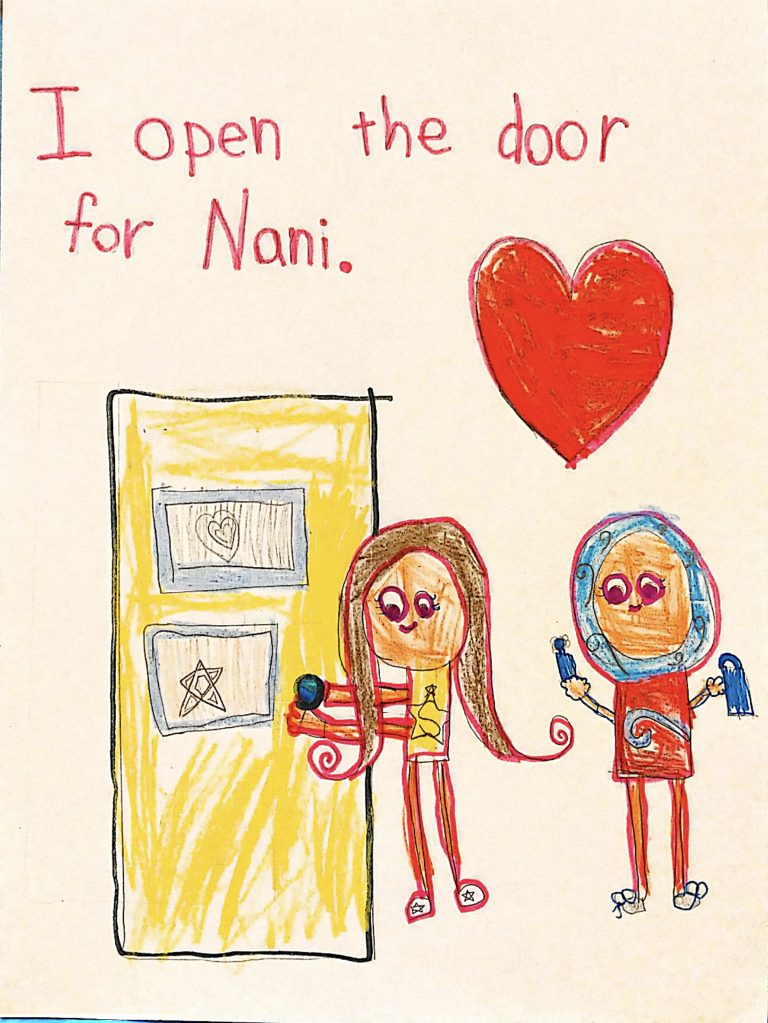 I open the door
for Nani.
S